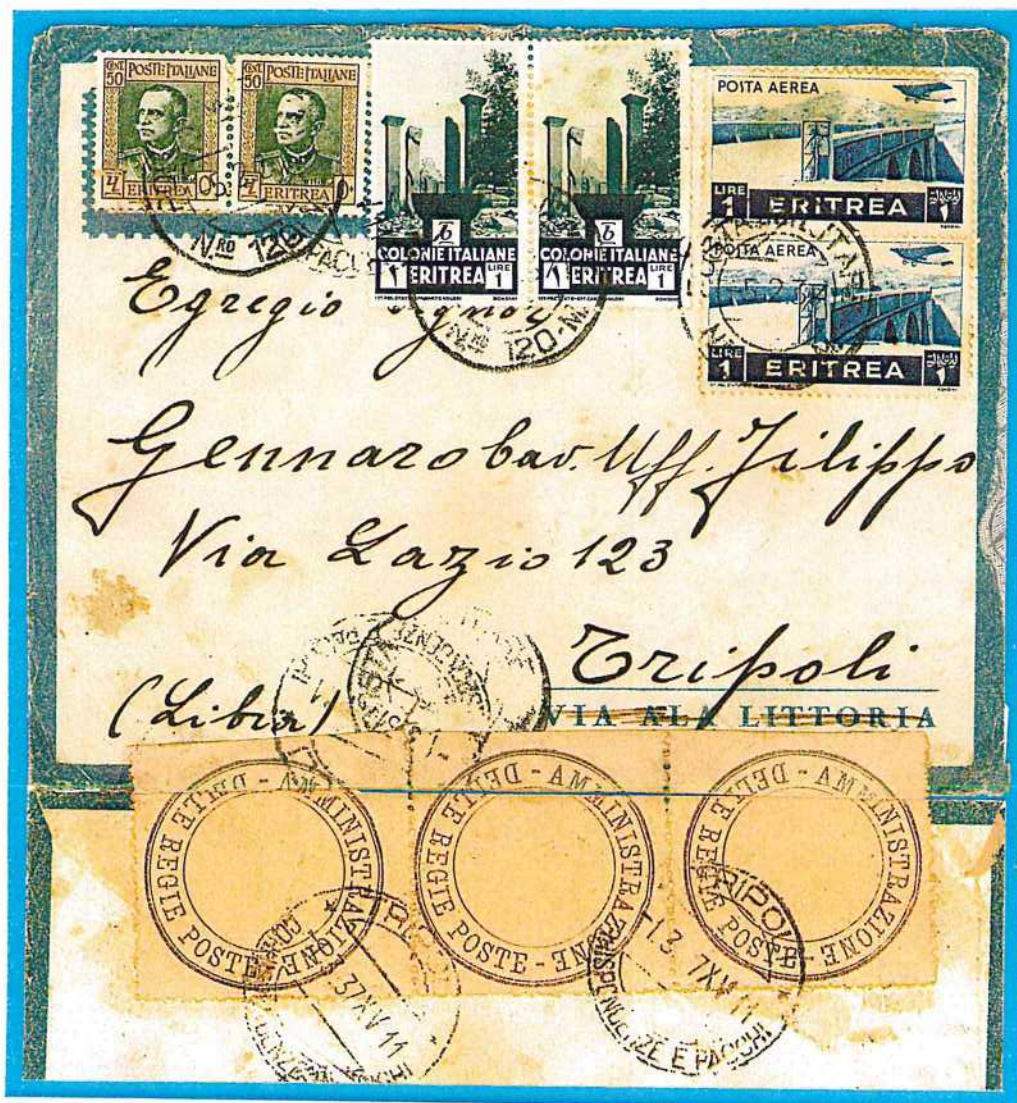 CENT 50 POSTE ITALIANE
ERITREA
CENT 50 POSTE ITALIANE
ERITREA
COLONIE ITALIANE
ERITREA LIRE 1
COLONIE ITALIANE
ERITREA LIRE 1
POSTA AEREA
LIRE 1 ERITREA
POSTA AEREA
LIRE 1 ERITREA
NRO 129
NRO 120
POSTA MILITARE
Egregio Signor
Gennaro Cav. Uff. Filippo
Via Lazio 123
Tripoli
(Libia)
VIA ALA LITTORIA
AMMINISTRAZIONE - DELLE REGIE POSTE -
AMMINISTRAZIONE - DELLE REGIE POSTE -
AMMINISTRAZIONE - DELLE REGIE POSTE -
37XV 11
TRIPOLI
1.3 7XV 11
CORRISPONDENZE E PACCHI